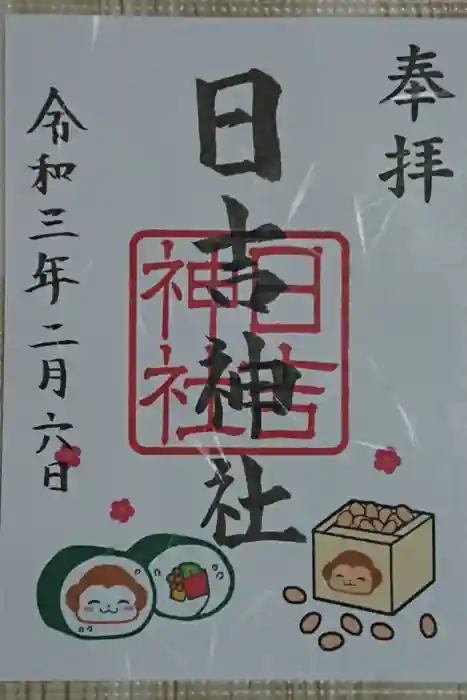 奉拝
日吉神社
日吉
神社
令和三年二月六日